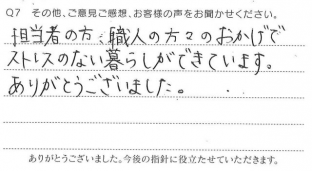 Q7 その他、ご意見ご感想、お客様の声をお聞かせください。
担当者の方、職人の方々のおかげで
ストレスのない暮らしができています。
ありがとうございました。
ありがとうございました。今後の指針に役立たせていただきます。